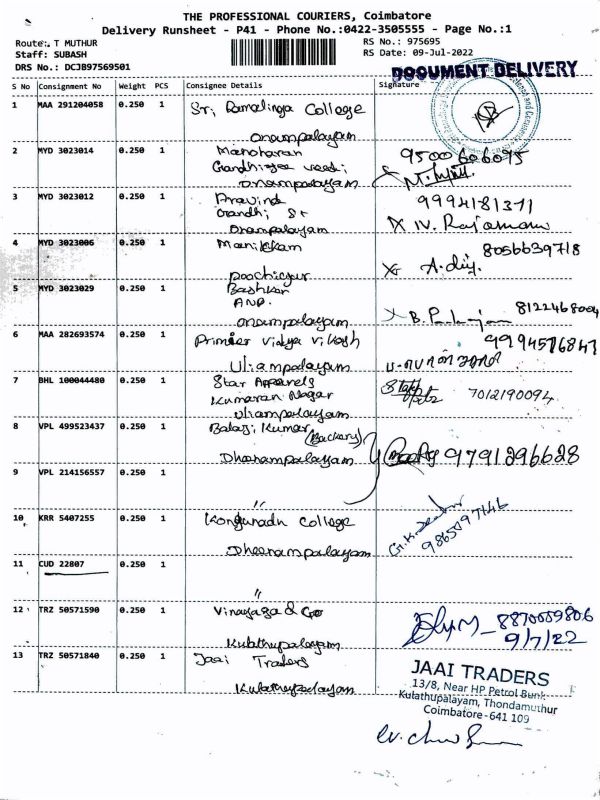 THE PROFESSIONAL COURIERS, Coimbatore
Delivery Runsheet - P41 - Phone No.:0422-3505555 - Page No.:1
Route:. T MUTHUR
RS No.: 975695
Staff: SUBASH
RS Date: 09-Jul-2022
DRS No.: DCJB97569501
DOCUMENT DELIVERY
S No Consignment No Weight PCS Consignee Details Signature
1 MAA 291204058 0.250 1 Sri Ramalinga College
onampalayam
2 MYD 3023014 0.250 1 Manoharan 9500606095
Gandhigee veedi
onampalayam
3 MYD 3023012 0.250 1 Aravind
Gandhi St
onampalayam
4 MYD 3023006 0.250 1 Manikkam 8056639718
Poochiyur
5 MYD 3023029 0.250 1 Bashkar 8122468004
AND.
onampalayam
6 MAA 282693574 0.250 1 Primier Vidya Vikash
Uliampalayam
7 BHL 100044480 0.250 1 Star Apparels
Kumaran Nagar 7012190094
Uliampalayam
8 VPL 499523437 0.250 1 Balaji Kumar
(Backery)
Dheenampalayam 9791296628
9 VPL 214156557 0.250 1
"
10 KRR 5407255 0.250 1 Kongunadu College 9865097146
Dheenampalayam
11 CUD 22807 0.250 1
"
12 TRZ 50571590 0.250 1 Vinayaga & Co 8870059806
Kulathupalayam 9/7/22
13 TRZ 50571840 0.250 1 Jaai Traders
Kulathupalayam
JAAI TRADERS
13/8, Near HP Petrol Bunk
Kulathupalayam, Thondamuthur
Coimbatore-641 109